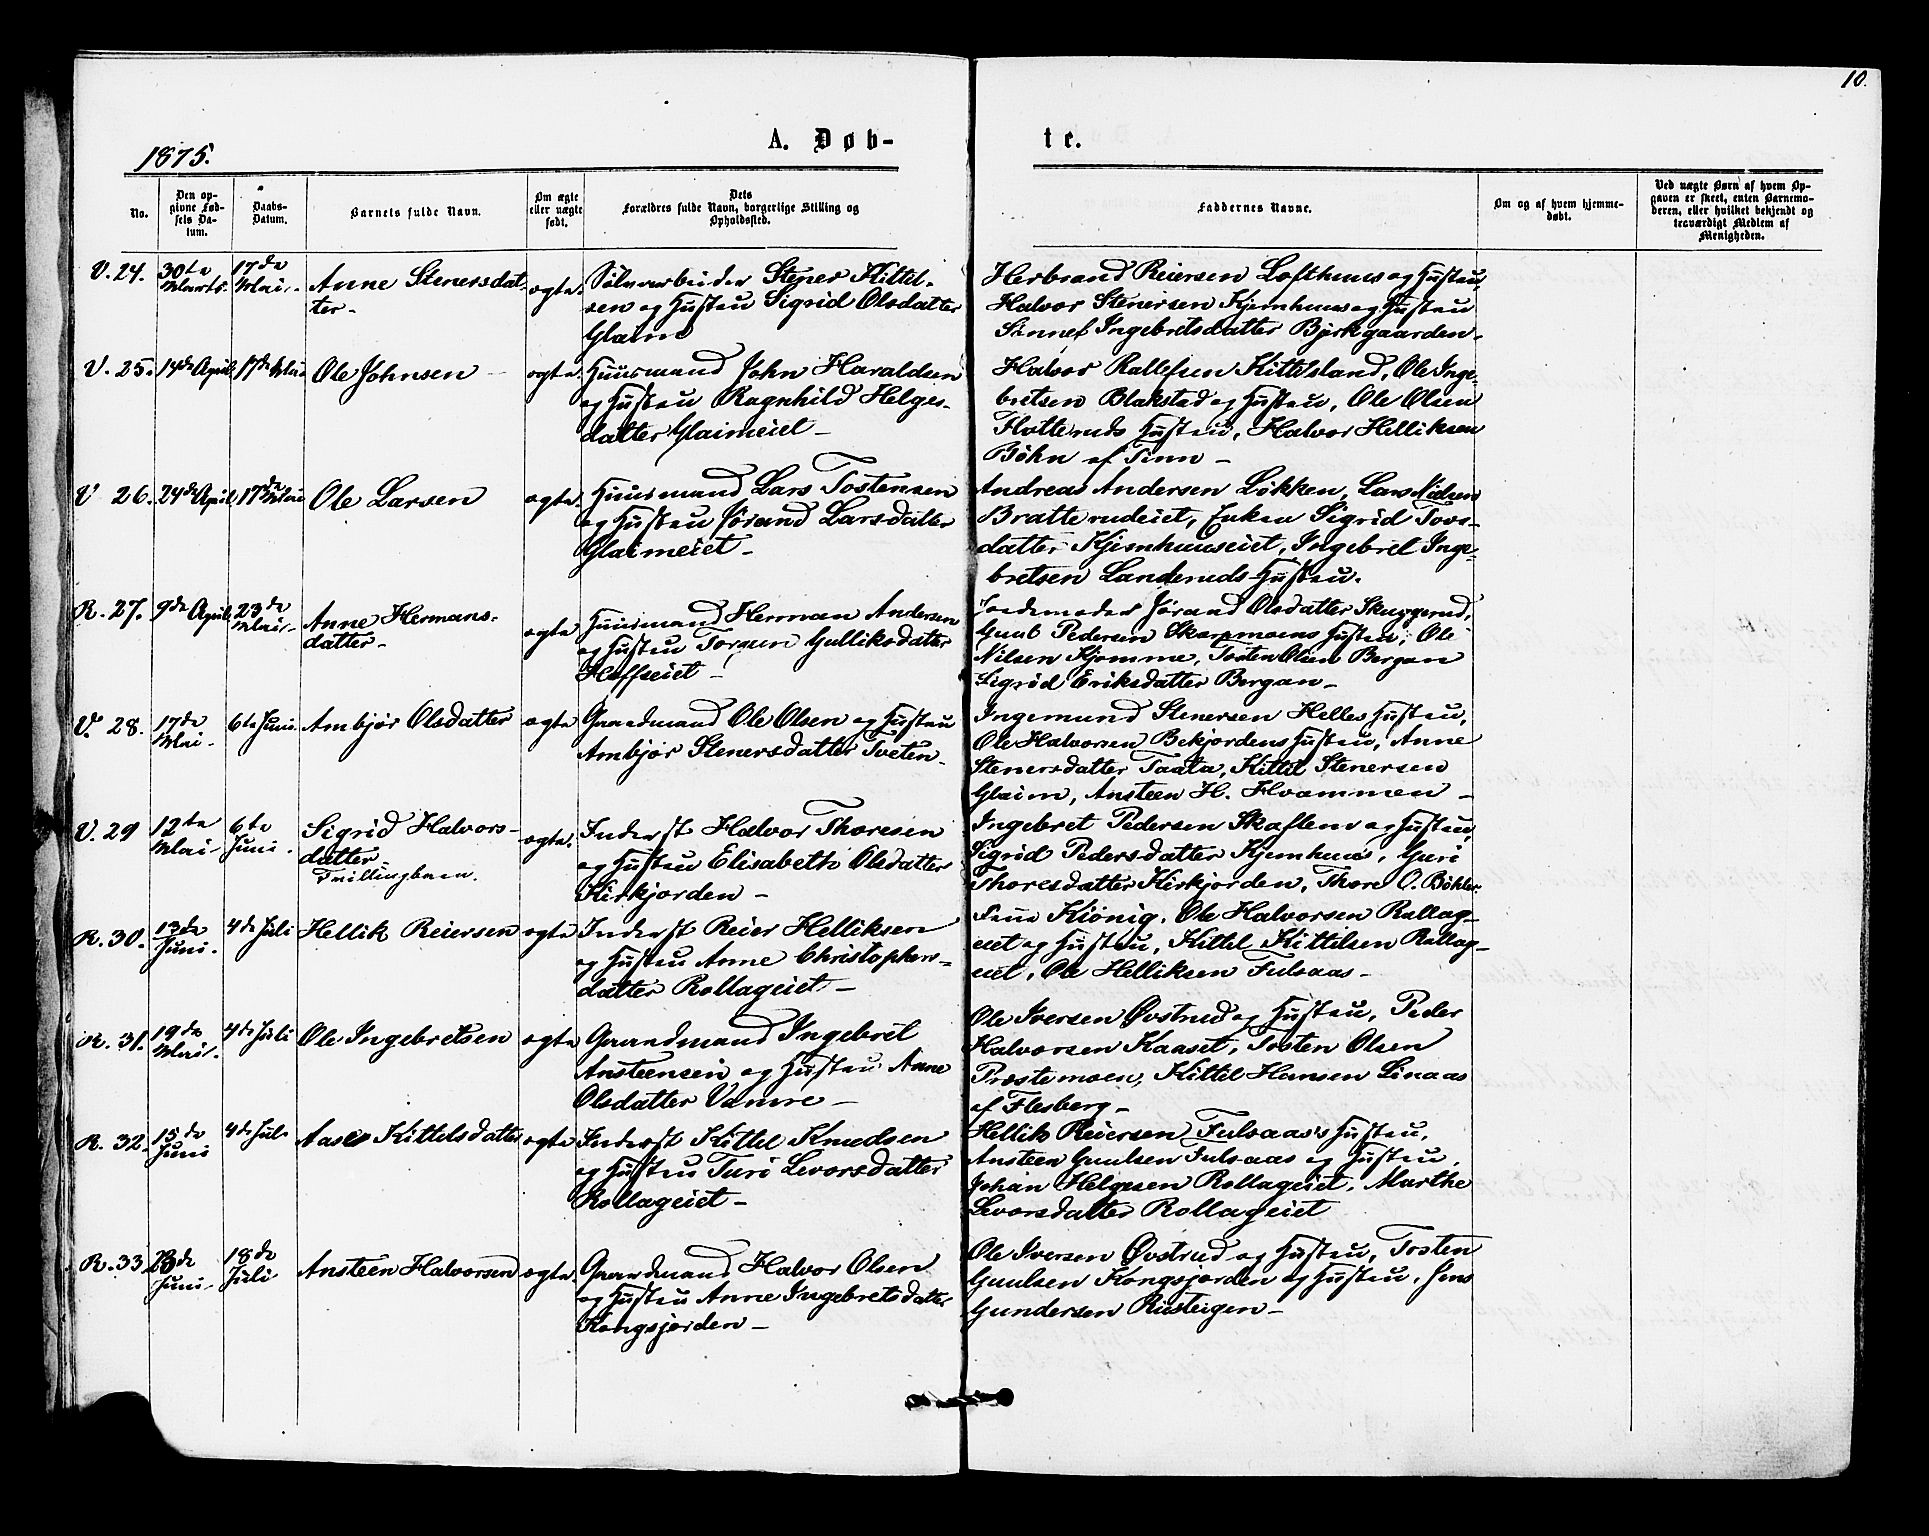 10.
1875.
A. Døb-
te.
No.
Den op-
givne Fød-
sels Da-
tum.
Daabs-
Datum.
Barnets fulde Navn.
Om ægte
eller uægte
født.
Dets
Forældres fulde Navn, borgerlige Stilling og
Opholdssted.
Faddernes Navne.
Om og af hvem hjemme-
døbt.
Ved uægte Børn af hvem Op-
gaven er skeet, enten Barnemo-
deren, eller hvilket bekjendt og
troværdigt Medlem af
Menigheden.
V. 24.
30te
Marts.
17de
Mai.
Anne Stenersdat-
ter-
ægte.
Sølvarbeider Stener Kittil-
sen og Hustru Sigrid Olsdatter
Glaim
Herbrand Reiersen Lofthuus og Hustru,
Halvor Stenersen Kjemhuus og Hustru
Sønnef Ingebretsdatter Bjørkgaarden-
V. 25.
14de April
17de Mai
Ole Johnsen
ægte.
Huusmand John Haraldsen
og Hustru Ragnhild Helges-
datter Glaimeiet-
Halvor Rallefsen Kittilsland, Ole Inge-
bretsen Blakstad og Hustru, Ole Olsen
Flotteruds Hustru, Halvor Helliksen
Bøhn af Tinn-
V 26.
24de April
17de Mai
Ole Larsen
ægte.
Huusmand Lars Tostensen
og Hustru Jørand Larsdatter
Glaimeiet-
Andreas Andersen Løkken, Lars Nielsen
Bratterudeiet, Enken Sigrid Tovs-
datter Kjemhuuseiet, Ingebret Inge-
bretsen Landeruds Hustru.
R. 27.
9de April
23de
Mai-
Anne Hermans-
datter-
ægte
Huusmand Herman Andersen
og Hustru Torgun Gulliksdatter
Hoffseiet-
Jordemoder Jørand Olsdatter Skuggerud,
Guul Pedersen Skarpmoens Hustru, Ole
Nilsen Kjomme, Tosten Olsen Bergan
Sigrid Eriksdatter Bergan-
V. 28.
17de
Mai-
6te Juni
Ambjør Olsdatter
ægte
Gaardmand Ole Olsen og Hustru
Ambjør Stenersdatter Tveten-
Ingemund Stenersen Helles Hustru,
Ole Halvorsen Bekjordens Hustru, Anne
Stenersdatter Taata, Kittil Stenersen
Glaim, Ansteen H. Hvammen-
V. 29
12te
Mai-
6te
Juni.
Sigrid Halvors-
datter
Tvillingbarn.
ægte.
Inderst Halvor Thoresen
og Hustru Elisabeth Olsdatter
Kirkjorden-
Ingebret Pedersen Skaflem og Hustru,
Sigrid Pedersdatter Kjemhuus, Guri
Thoresdatter Kirkjorden, Thore O. Bøhler.
R. 30.
13de
Juni.
4de Juli
Hellik Reiersen
ægte
Inderst Reier Helliksen
og Hustru Anne Christophers-
datter Rollageiet-
Fru Kiönig, Ole Halvorsen Rollag-
eiet og Hustru, Kittel Kittilsen Rollag-
eiet, Ole Helliksen Fulsaas-
R. 31.
19de
Mai.
4de Juli
Ole Ingebretsen
ægte
Gaardmand Ingebret
Ansteensen og Hustru Anne
Olsdatter Vamre-
Ole Iversen Øvstrud og Hustru, Peder
Halvorsen Kaaset, Tosten Olsen
Prestemoen, Kittel Hansen Linaas
af Flesberg-
R. 32.
15de
Juni
4de Juli
Aase Kittelsdatter
ægte
Inderst Kittel Knudsen
og Hustru Turi Levorsdatter
Rollageiet-
Hellik Reiersen Fulsaas's Hustru,
Ansteen Guulsen Fulsaas og Hustru,
Johan Helgesen Rollageiet, Marthe
Levorsdatter Rollageiet
R. 33
Juni-
18de
Juli
Ansteen Halvorsen
ægte.
Gaardmand Halvor Olsen
og Hustru Anne Ingebretsdatter
Kongsjorden-
Ole Iversen Øvstrud og Hustru, Tosten
Guulsen Kongsjorden og Hustru, Jens
Gundersen Rusteigen-